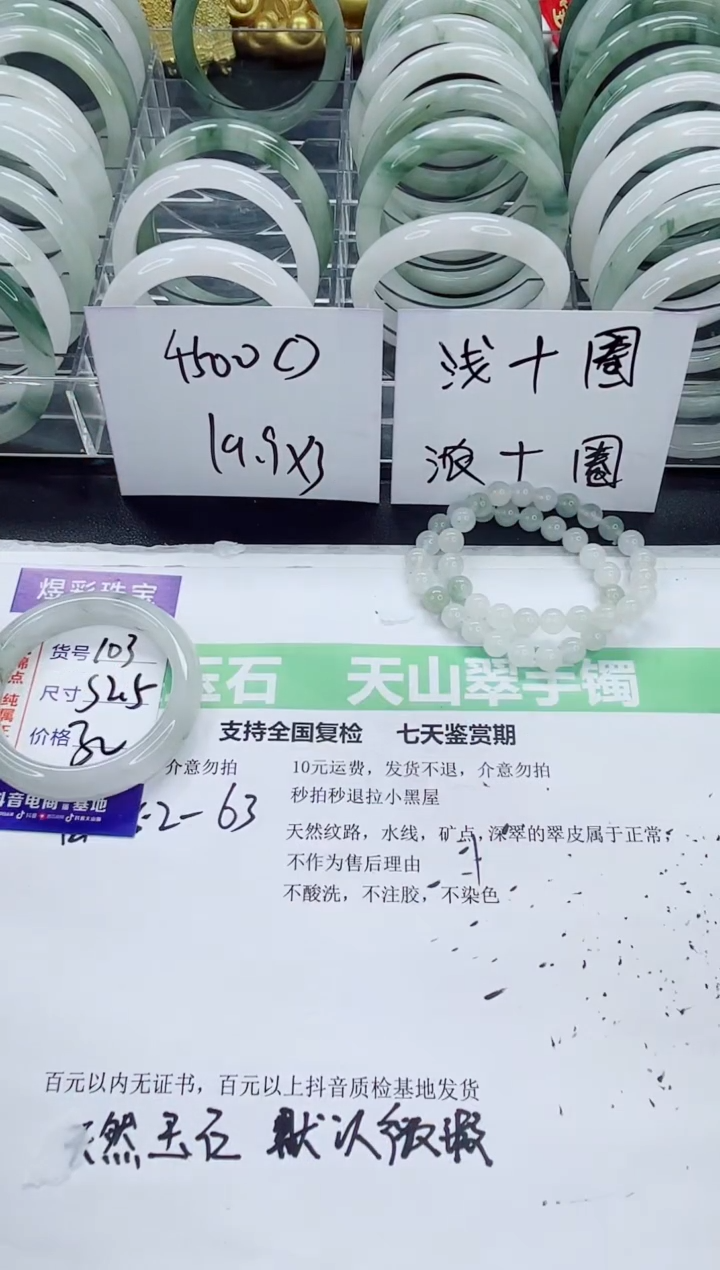 4500
19.9X3
浅十圈
波十圈
煜彩珠宝
货号 103
尺寸 52.5
价格 32
抖音电商 基地
玉石 天山翠手镯
支持全国复检 七天鉴赏期
介意勿拍
10元运费，发货不退，介意勿拍
秒拍秒退拉小黑屋
2-63
天然纹路，水线，矿点，深翠的翠皮属于正常，
不作为售后理由
不酸洗，不注胶，不染色
百元以内无证书，百元以上抖音质检基地发货
天然玉石 默认微瑕